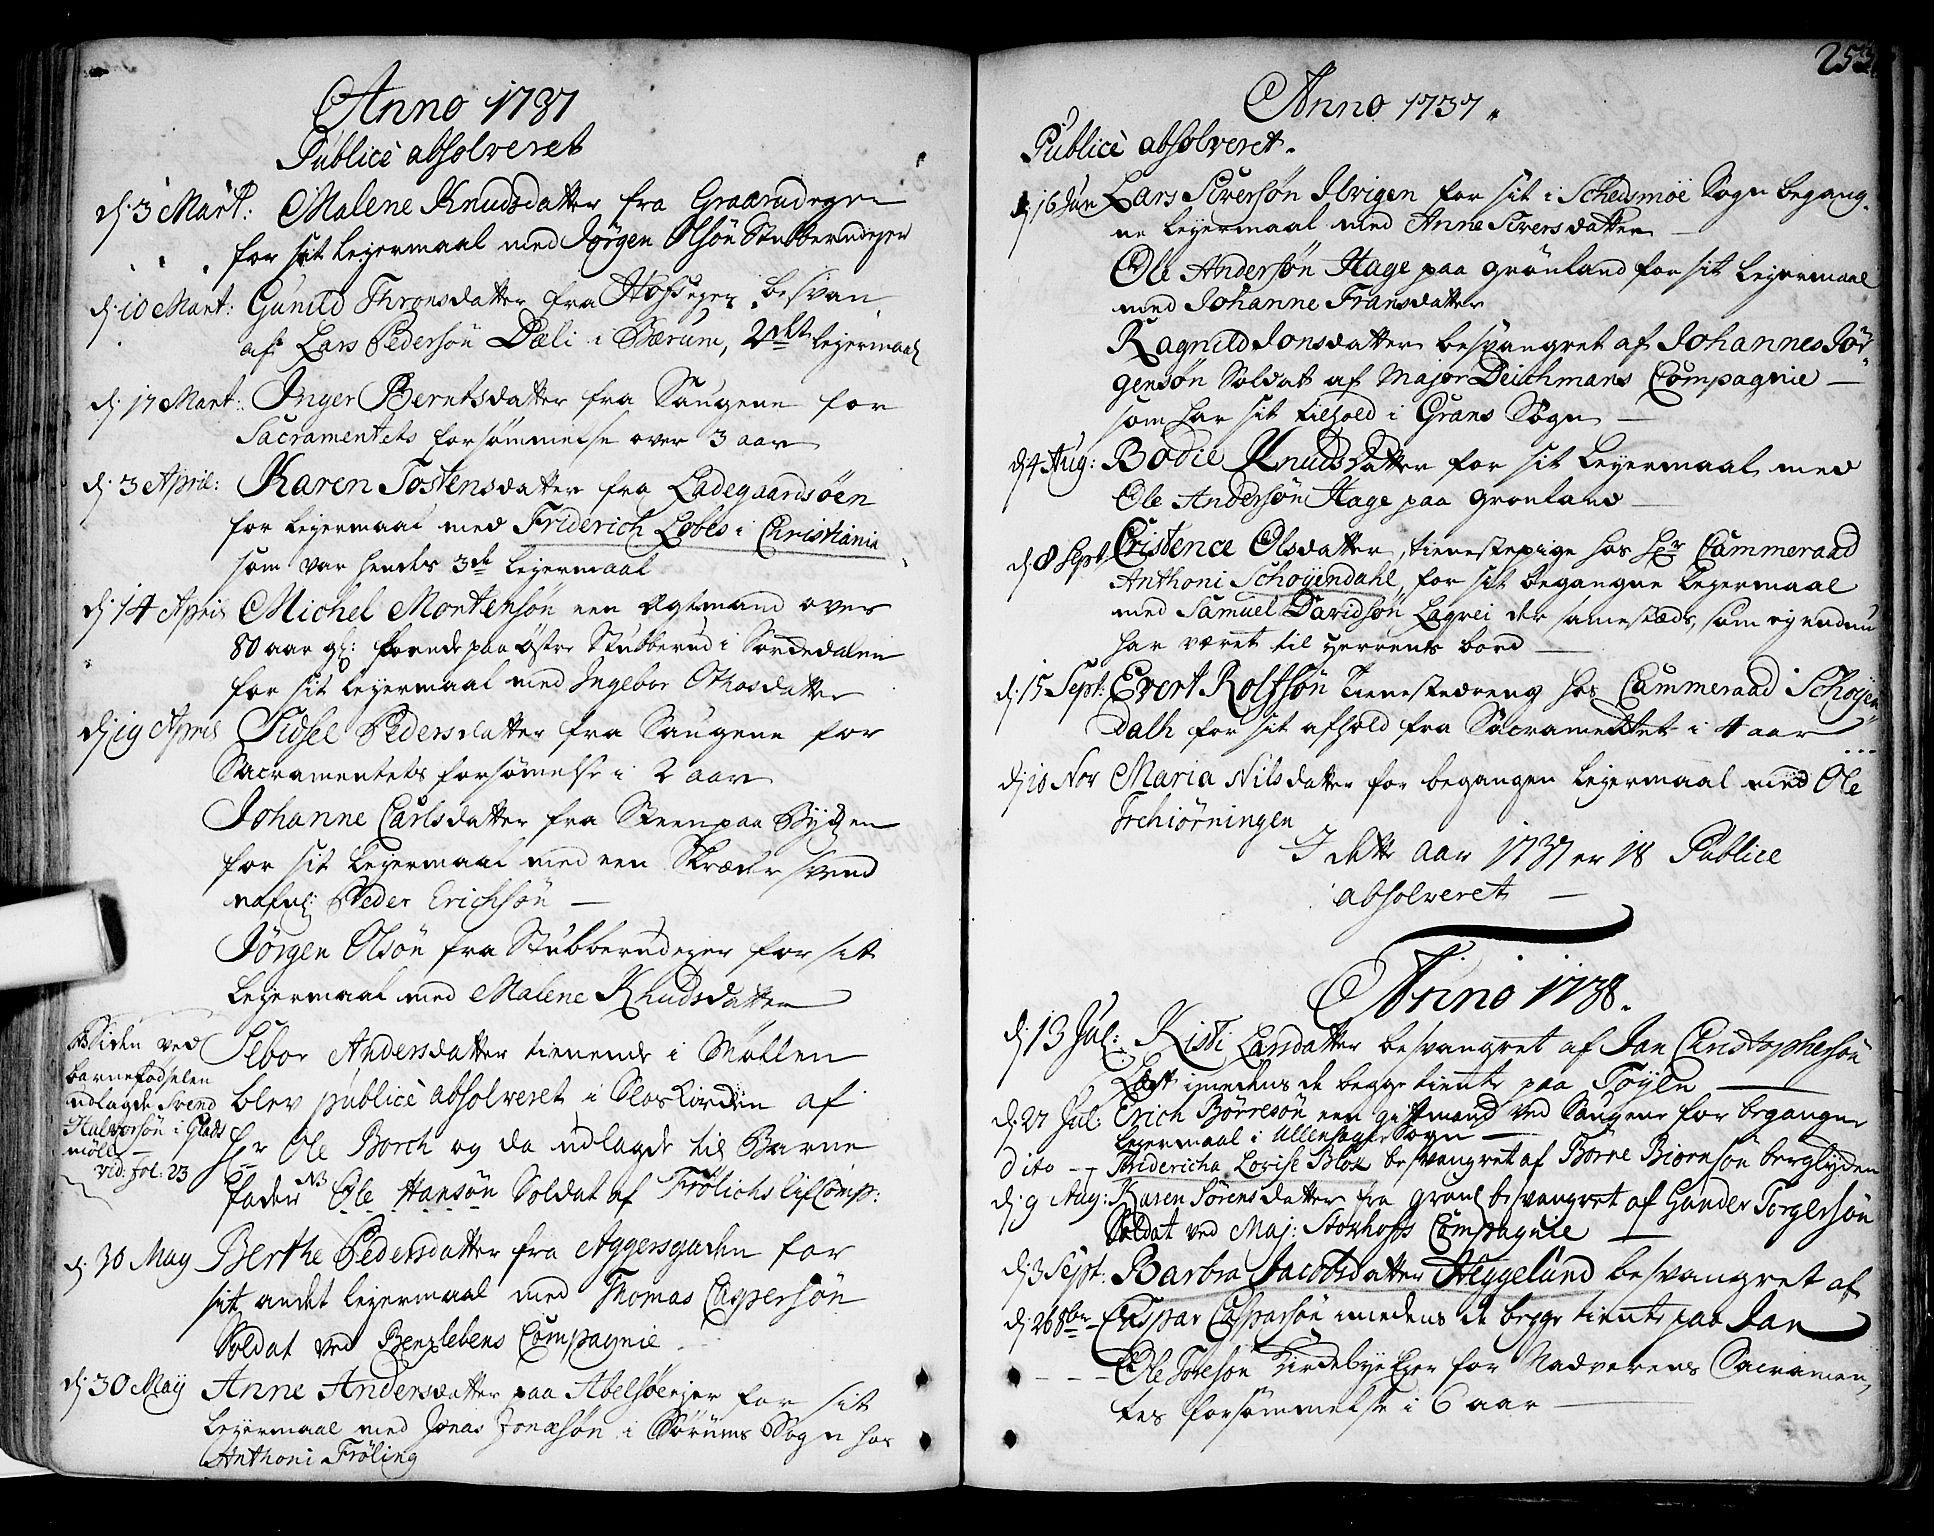 Anno 1737
Publicè absolveret
d: 3 Mart: Malene Knudsdatter fra Graarudegen
for sit lejermaal med Jørgen Olsøn Stubberudejer
d: 10 Mart: Gunild Thronsdatter fra Hofsejer, besvan
af: Lars Pedersøn Dæli i Bærum, 2det lejermaal
d: 17 Mart: Inger Berntsdatter fra Saugene for
Sacramentets forsømmelse over 3 aar
d: 3 April: Karen Tostensdatter fra Ladegaardsøen
for lejermaal med Friderich Lobes i Christiania
som var hendes 3de lejermaal
d: 14 April Michel Mortensøn een Ægtmand over
80 aar gl: boende paa østre Stubberud i Sørkedalen
for sit lejermaal med Ingebor Othosdatter
d: 19 April Sidsel Pedersdatter fra Saugene for
Sacramentets forsømelse i 2 aar
Johanne Carlsdatter fra Steen paa Bygden
for sit lejermaal med een Skræder svend
nafnl: Peder Erichsøn —
Jørgen Olsøn fra Stubberudejer for sit
lejermaal med Malene Knudsdatter
Sebor Andersdatter tienende i Møllen
blev publicè absolveret i Slos Kirken af
Hr Ole Borch og da udlagde til Barne
fader NB Ole Hansøn Soldat af Frølichs lifComp:
NB Siden ved
barnefødselen
udlagde Svend
Halvorsøn i Glads
mølle —
vid: fol: 23
d: 30 May Berthe Pedersdatter fra Aggersgaden for
sit andet lejermaal med Thomas Caspersøn
Soldat ved Benzlebens Compagnie
d: 30 Maÿ Anne Andersdatter paa Abelsøeejer for sit
lejermaal med Jonas Jonasøn i Sørums Sogn hos
Anthoni Frøling
253
Anno 1737
Publicè absolveret.
d: 16 Jun Lars Siversøn Ibrigen for sit i Schedsmoe Sogn begang-
ne lejermaal med Anne Siversdatter —
Ole Andersøn Hage paa Grønland for sit lejermaal
med Johanne Fransdatter
Ragnild Jonsdatter besvangret af Johannes Jør-
gensøn Soldat af Major Deichmans Compagnie —
som har sit tilhold i Grans Sogn —
d: 4 Aug: Bodil Knudsdatter for sit lejermaal med
Ole Andersøn Hage paa Grønland —
d: 8 Sept Cristence Olsdatter, tienestepige hos Hr Cammeraad
Anthoni Schøyendahl for sit begangne lejermaal
med Samuel Davidsøn Lagrei der samestæds, som ej endnu
har været til Herrens bord —
d: 15 Sept: Evert Rolfsøn Tienestedreng hos Cammeraad Schøyen
Dalh for sit afhold fra Sacramentet i 4 aar
d: 10 Nov Maria Nilsdatter for begangen lejermaal med Ole
Trehiørningen
I dette Aar 1737 er 18 Publice
absolveret —
Anno 1738.
d: 13 Jul: Kisti Larsdatter besvangret af Jan Christophersøn
imedens de begge tiente paa Tøyen —
d: 27 Jul: Erich Børresøn een giftmand ved Saugene for begangne
lejermaal i Ullensager Sogn —
dito - - Fridericha Lovise Blox besvangret af Børne Biørnsøn berglyden
d: 9 Aug: Karen Sørensdatter fra Gran besvangret af Gunder Torgersøn
Soldat ved Maj: Storhoffs Compagnie —
d: 3 Sept: Barbra Jacobsdatter Heggelund besvangret af
d: 26 8br - Caspar Casparsøn imedens de begge tiente paa Jar
- - - Ole Toresøn Kirkebye Ejer for Nadverens Sacramen,
tes forsømmelse i 6 aar —